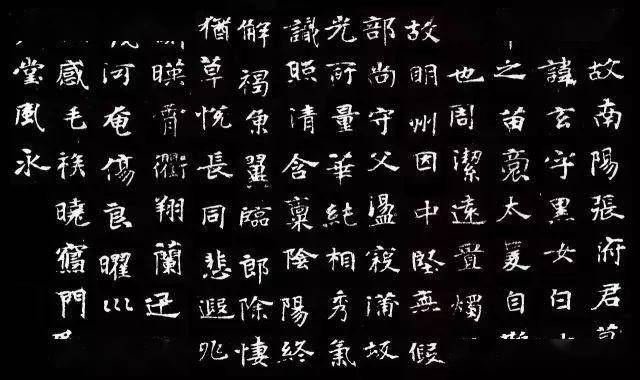 故南陽張府君墓
諱玄字黑女白水
之苗裔太自
也周潔遠燭
故明州因中堅無假
部尚守父盪寇蒲坂
光所量華純相秀氣
識照清含稟陰陽終
解褐魚翼臨郎除悽
猶草悅長同悲遐兆
暎霄衢翔蘭迅
河奄傷良曜巛
感毛曉寫門
堂風永